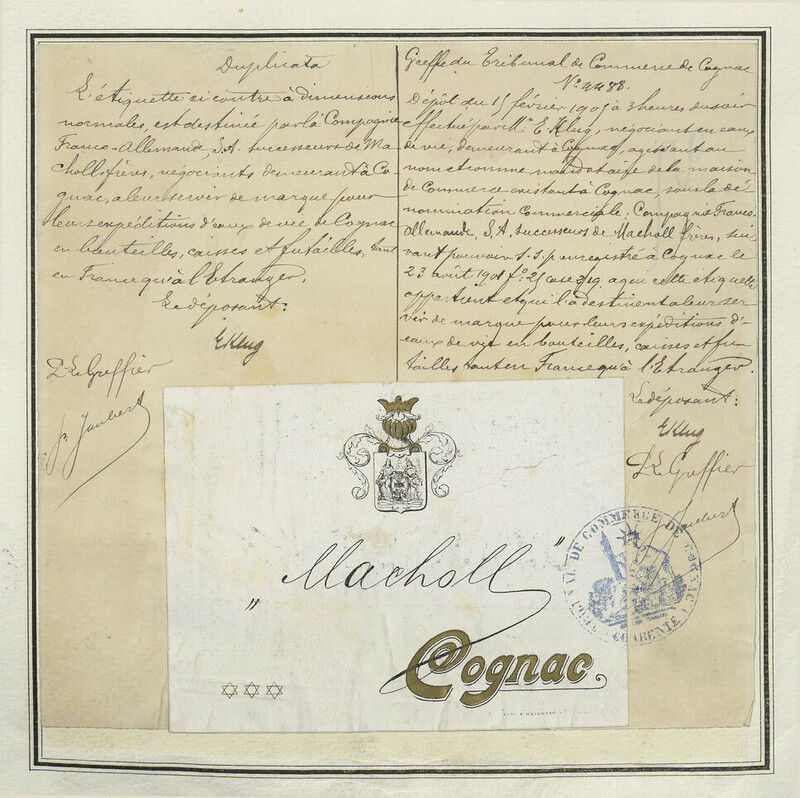 Duplicata
L'étiquette ci contre à dimensions
normales, est destinée par la Compagnie
Franco-Allemande, S.A. successeurs de Ma-
choll frères, négociants demeurant à Co-
gnac, a leur servir de marque pour
leurs expéditions d'eaux de vie de Cognac
en bouteilles, caisses et futailles, tant
en France qu'à l'Etranger.
Le déposant:
EKlug
Le Greffier
Jaubert
Greffe du Tribunal de Commerce de Cognac
No 4488.
Dépôt du 15 février 1905 à heures du soir
effectué par Mr E. Klug, négociant en eaux
de vie, demeurant à Cognac, agissant au
nom et comme mandataire de la maison
de Commerce existant à Cognac, sous la dé-
nomination commerciale: Compagnie Franco-
Allemande, S.A. successeurs de Macholl frères, sui-
vant pouvoir s.s.p. enregistré à Cognac le
23 août 1901 fo. 25 case 319. a qui cette etiquette
appartient et qui l'a destinent a leur ser-
vir de marque pour leurs expéditions d'-
eaux de vie en bouteilles, caisses et fu-
tailles tant en France qu'à l'Etranger.
Le déposant:
EKlug
Le Greffier
Jaubert
„Macholl”
Cognac
TRIBUNAL DE COMMERCE DE COGNAC
CHARENTE